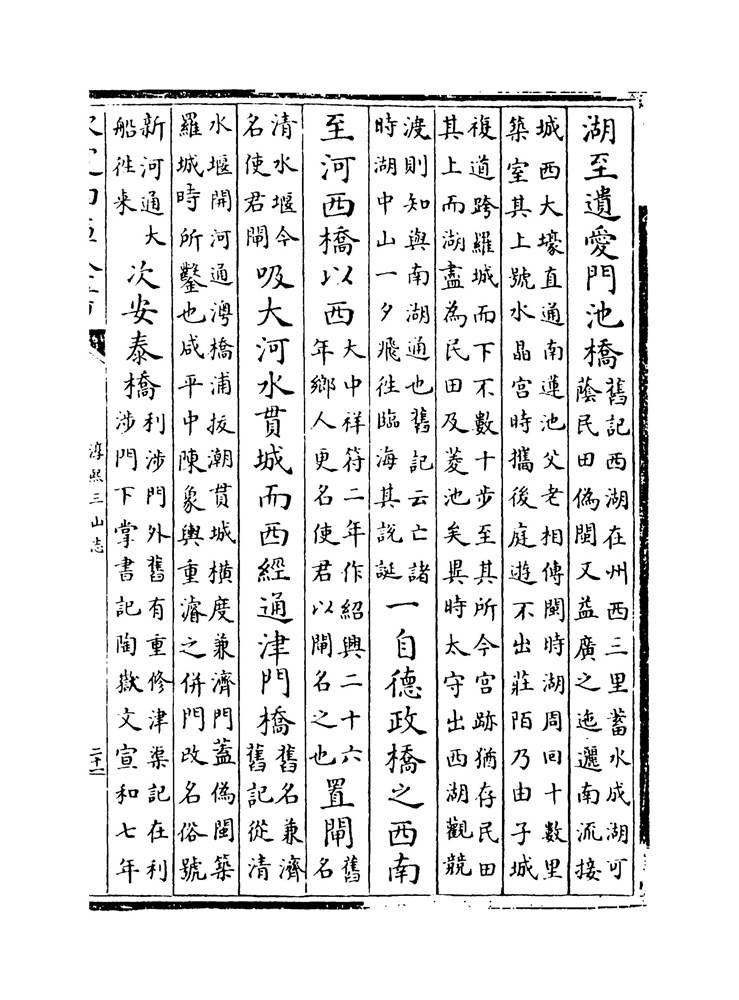 湖至遺愛門池橋
舊記西湖在州西三里蓄水成湖可
蔭民田偽閩又益廣之迤邐南流接
城西大壕直通南蓮池父老相傳閩時湖周回十數里
築室其上號水晶宮時攜後庭遊不出莊陌乃由子城
複道跨羅城而下不數十步至其所今宮跡猶存民田
其上而湖盡為民田及菱池矣異時太守出西湖觀競
渡則知與南湖通也舊記云亡諸
時湖中山一夕飛徃臨海其說誕
一自德政橋之西南
至河西橋以西
大中祥符二年作紹興二十六
年鄉人更名使君以閘名之也
置閘
舊
名
清水堰今
名使君閘
吸大河水貫城而西經通津門橋
舊名兼濟
舊記從清
水堰開河通澚橋浦扳潮貫城橫度兼濟門蓋偽閩築
羅城時所鑿也咸平中陳象輿重濬之併門改名俗號
新河通大
船徃来
次安泰橋
利涉門外舊有重修津渠記在利
涉門下掌書記陶嶽文宣和七年
淳熙三山志
二十一